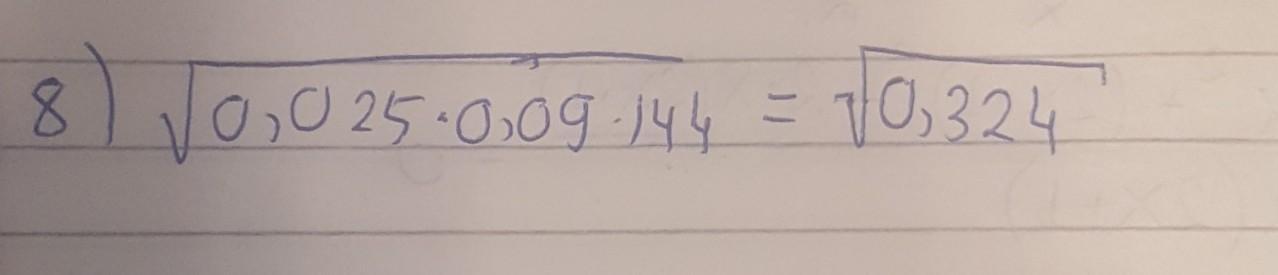 8) √0,025·0,09·144 = √0,324